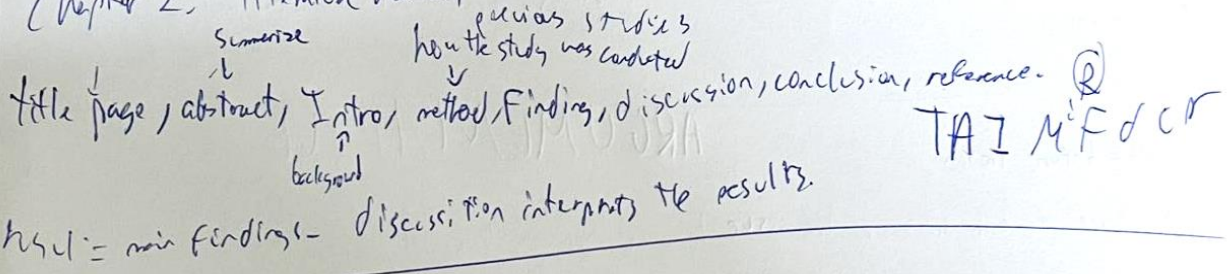 Chapter 2,
previous studies
Summerize
how the study was conducted
title page, abstract, Intro, method, Finding, discussion, conclusion, reference. R
TAI M F d c r
background
main findings - discussition interprets the results.